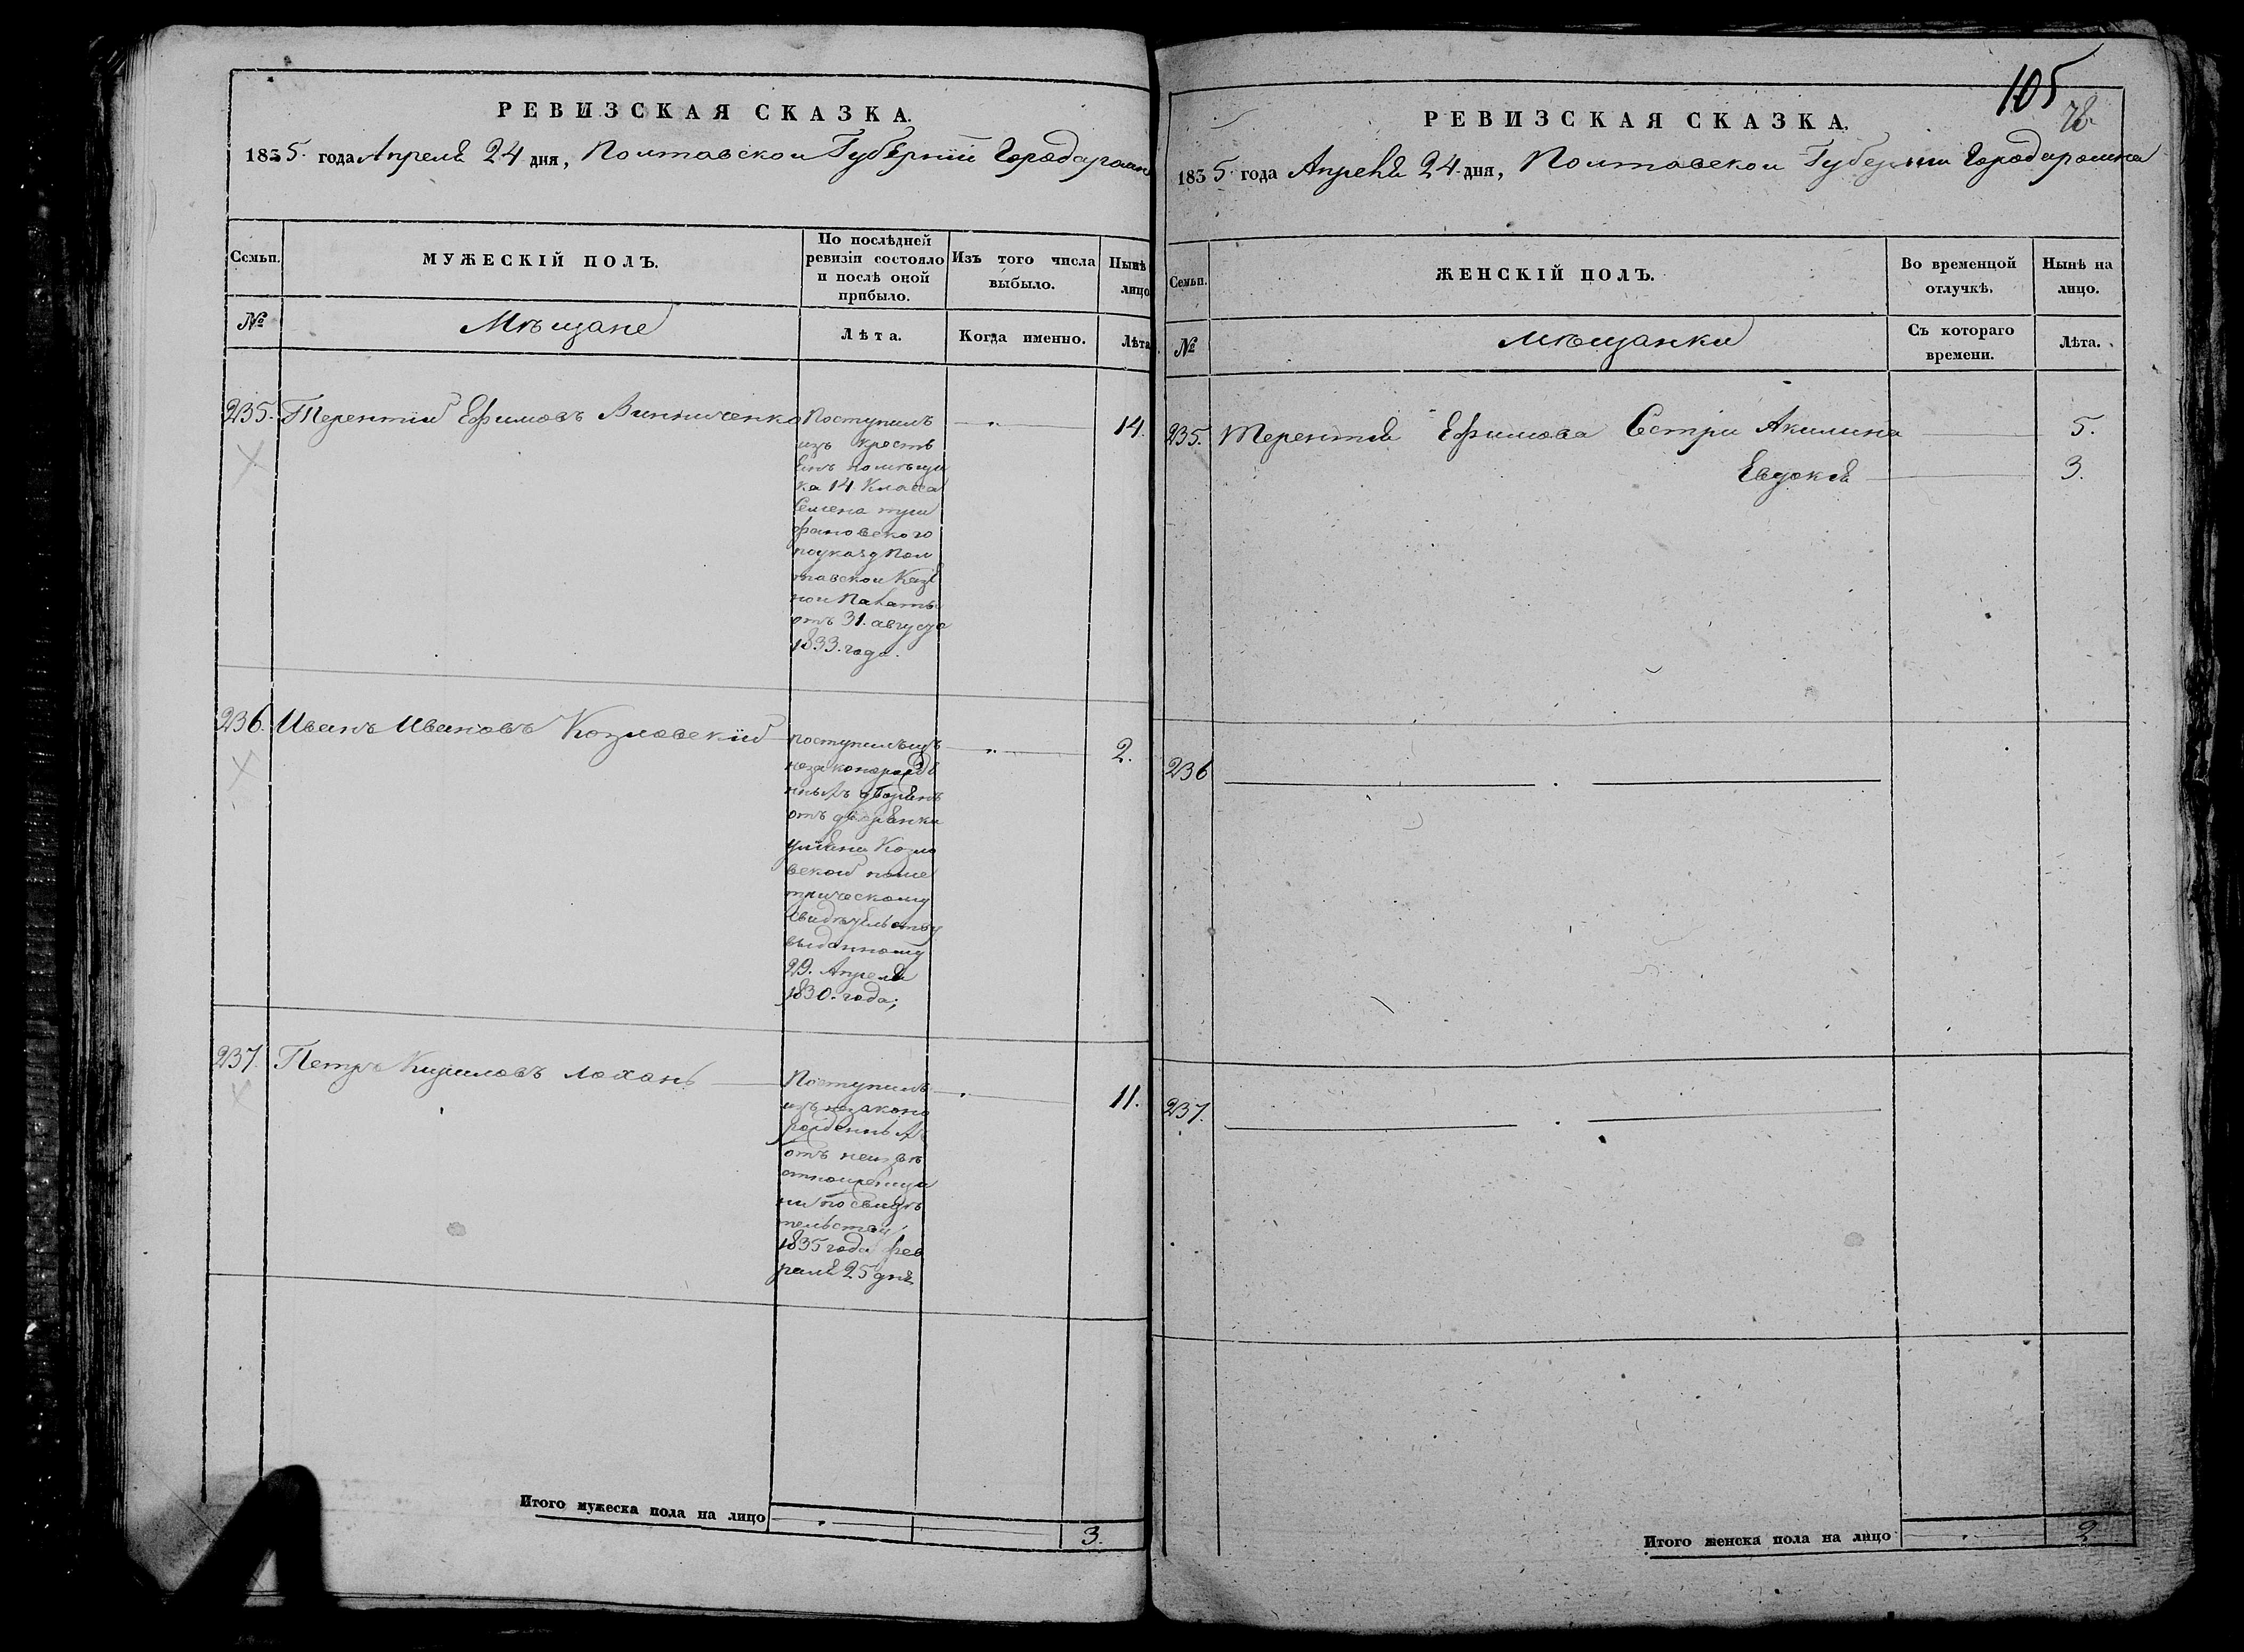 РЕВИЗСКАЯ СКАЗКА.
1835. года Апреля 24 дня, Полтавской Губернии Города
Семьи.
МУЖЕСКІЙ ПОЛЪ.
По послѣдней
ревизіи состояло
и послѣ оной
прибыло.
Изъ того числа
выбыло.
Нынѣ
лицо
№
Мѣщане
Лѣта.
Когда именно.
Лѣта
235. Терентій Ефимовъ Винниченко
Поступилъ
изъ кресть
янъ помѣщи
ка 14 Класса
Семена
фановского
по указу Пол
тавской Казе
ной Палаты
отъ 31. августа
1833. года.
14.
236. Иванъ Ивановъ Козловскій
поступилъ изъ
незаконорожде
нныхъ дворянъ
отъ дворянки
Уліяны Козло
вской по ме
трическому
свидѣтельству
выданному
29. Апреля
1830. года;
2.
237. Петръ Кириловъ Лохань
Поступилъ
изъ незаконо
рожденныхъ
отъ неизвѣ
стной женщи
ни по свидѣ
тельству
1835 года фев
раля 25 дня
11.
Итого мужеска пола на лицо
3.
105
РЕВИЗСКАЯ СКАЗКА.
1835. года Апреля 24. дня, Полтавской Губернии Города
Семьи.
ЖЕНСКІЙ ПОЛЪ.
Во временной
отлучкѣ.
Нынѣ на
лицо.
№
Мѣщанки
Съ котораго
времени.
Лѣта.
235. Терентія Ефимова Сестри Акилина 5.
Евдокія 3.
236
237.
Итого женска пола на лицо
2